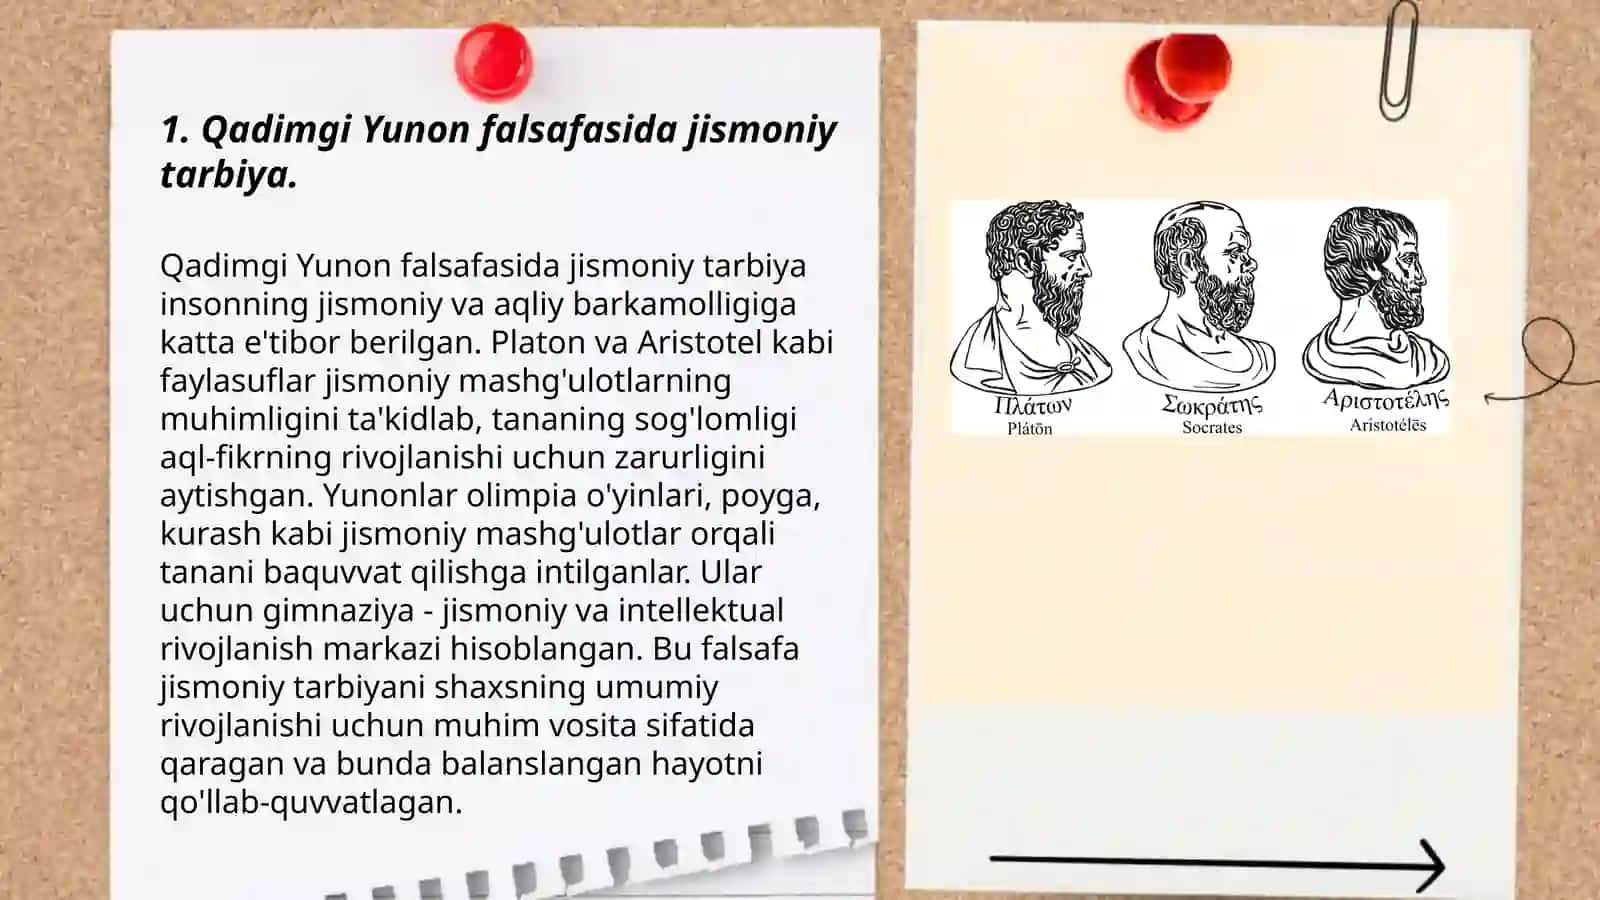 1. Qadimgi Yunon falsafasida jismoniy
tarbiya.
Qadimgi Yunon falsafasida jismoniy tarbiya
insonning jismoniy va aqliy barkamolligiga
katta e'tibor berilgan. Platon va Aristotel kabi
faylasuflar jismoniy mashg'ulotlarning
muhimligini ta'kidlab, tananing sog'lomligi
aql-fikrning rivojlanishi uchun zarurligini
aytishgan. Yunonlar olimpia o'yinlari, poyga,
kurash kabi jismoniy mashg'ulotlar orqali
tanani baquvvat qilishga intilganlar. Ular
uchun gimnaziya - jismoniy va intellektual
rivojlanish markazi hisoblangan. Bu falsafa
jismoniy tarbiyani shaxsning umumiy
rivojlanishi uchun muhim vosita sifatida
qaragan va bunda balanslangan hayotni
qo'llab-quvvatlagan.
Πλάτων Σωκράτης Αριστοτέλης
Plátōn Socrates Aristotélēs